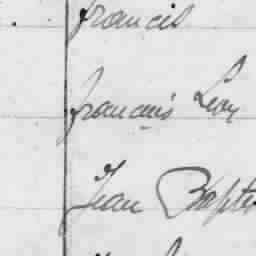 francis
francois Leon
Jean Bapti